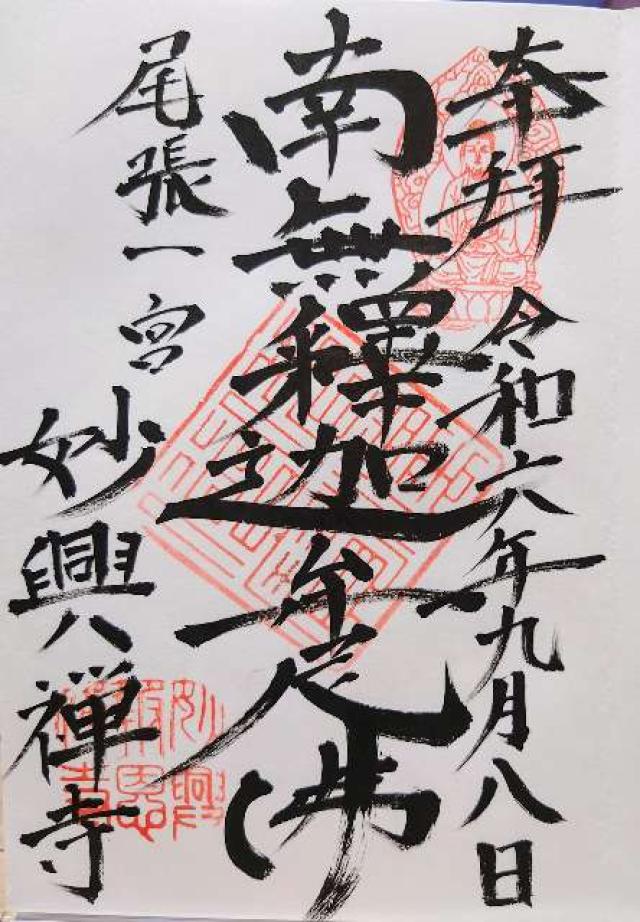 奉拝 令和六年九月八日
南無釋迦牟尼佛
尾張一宮
妙興禅寺